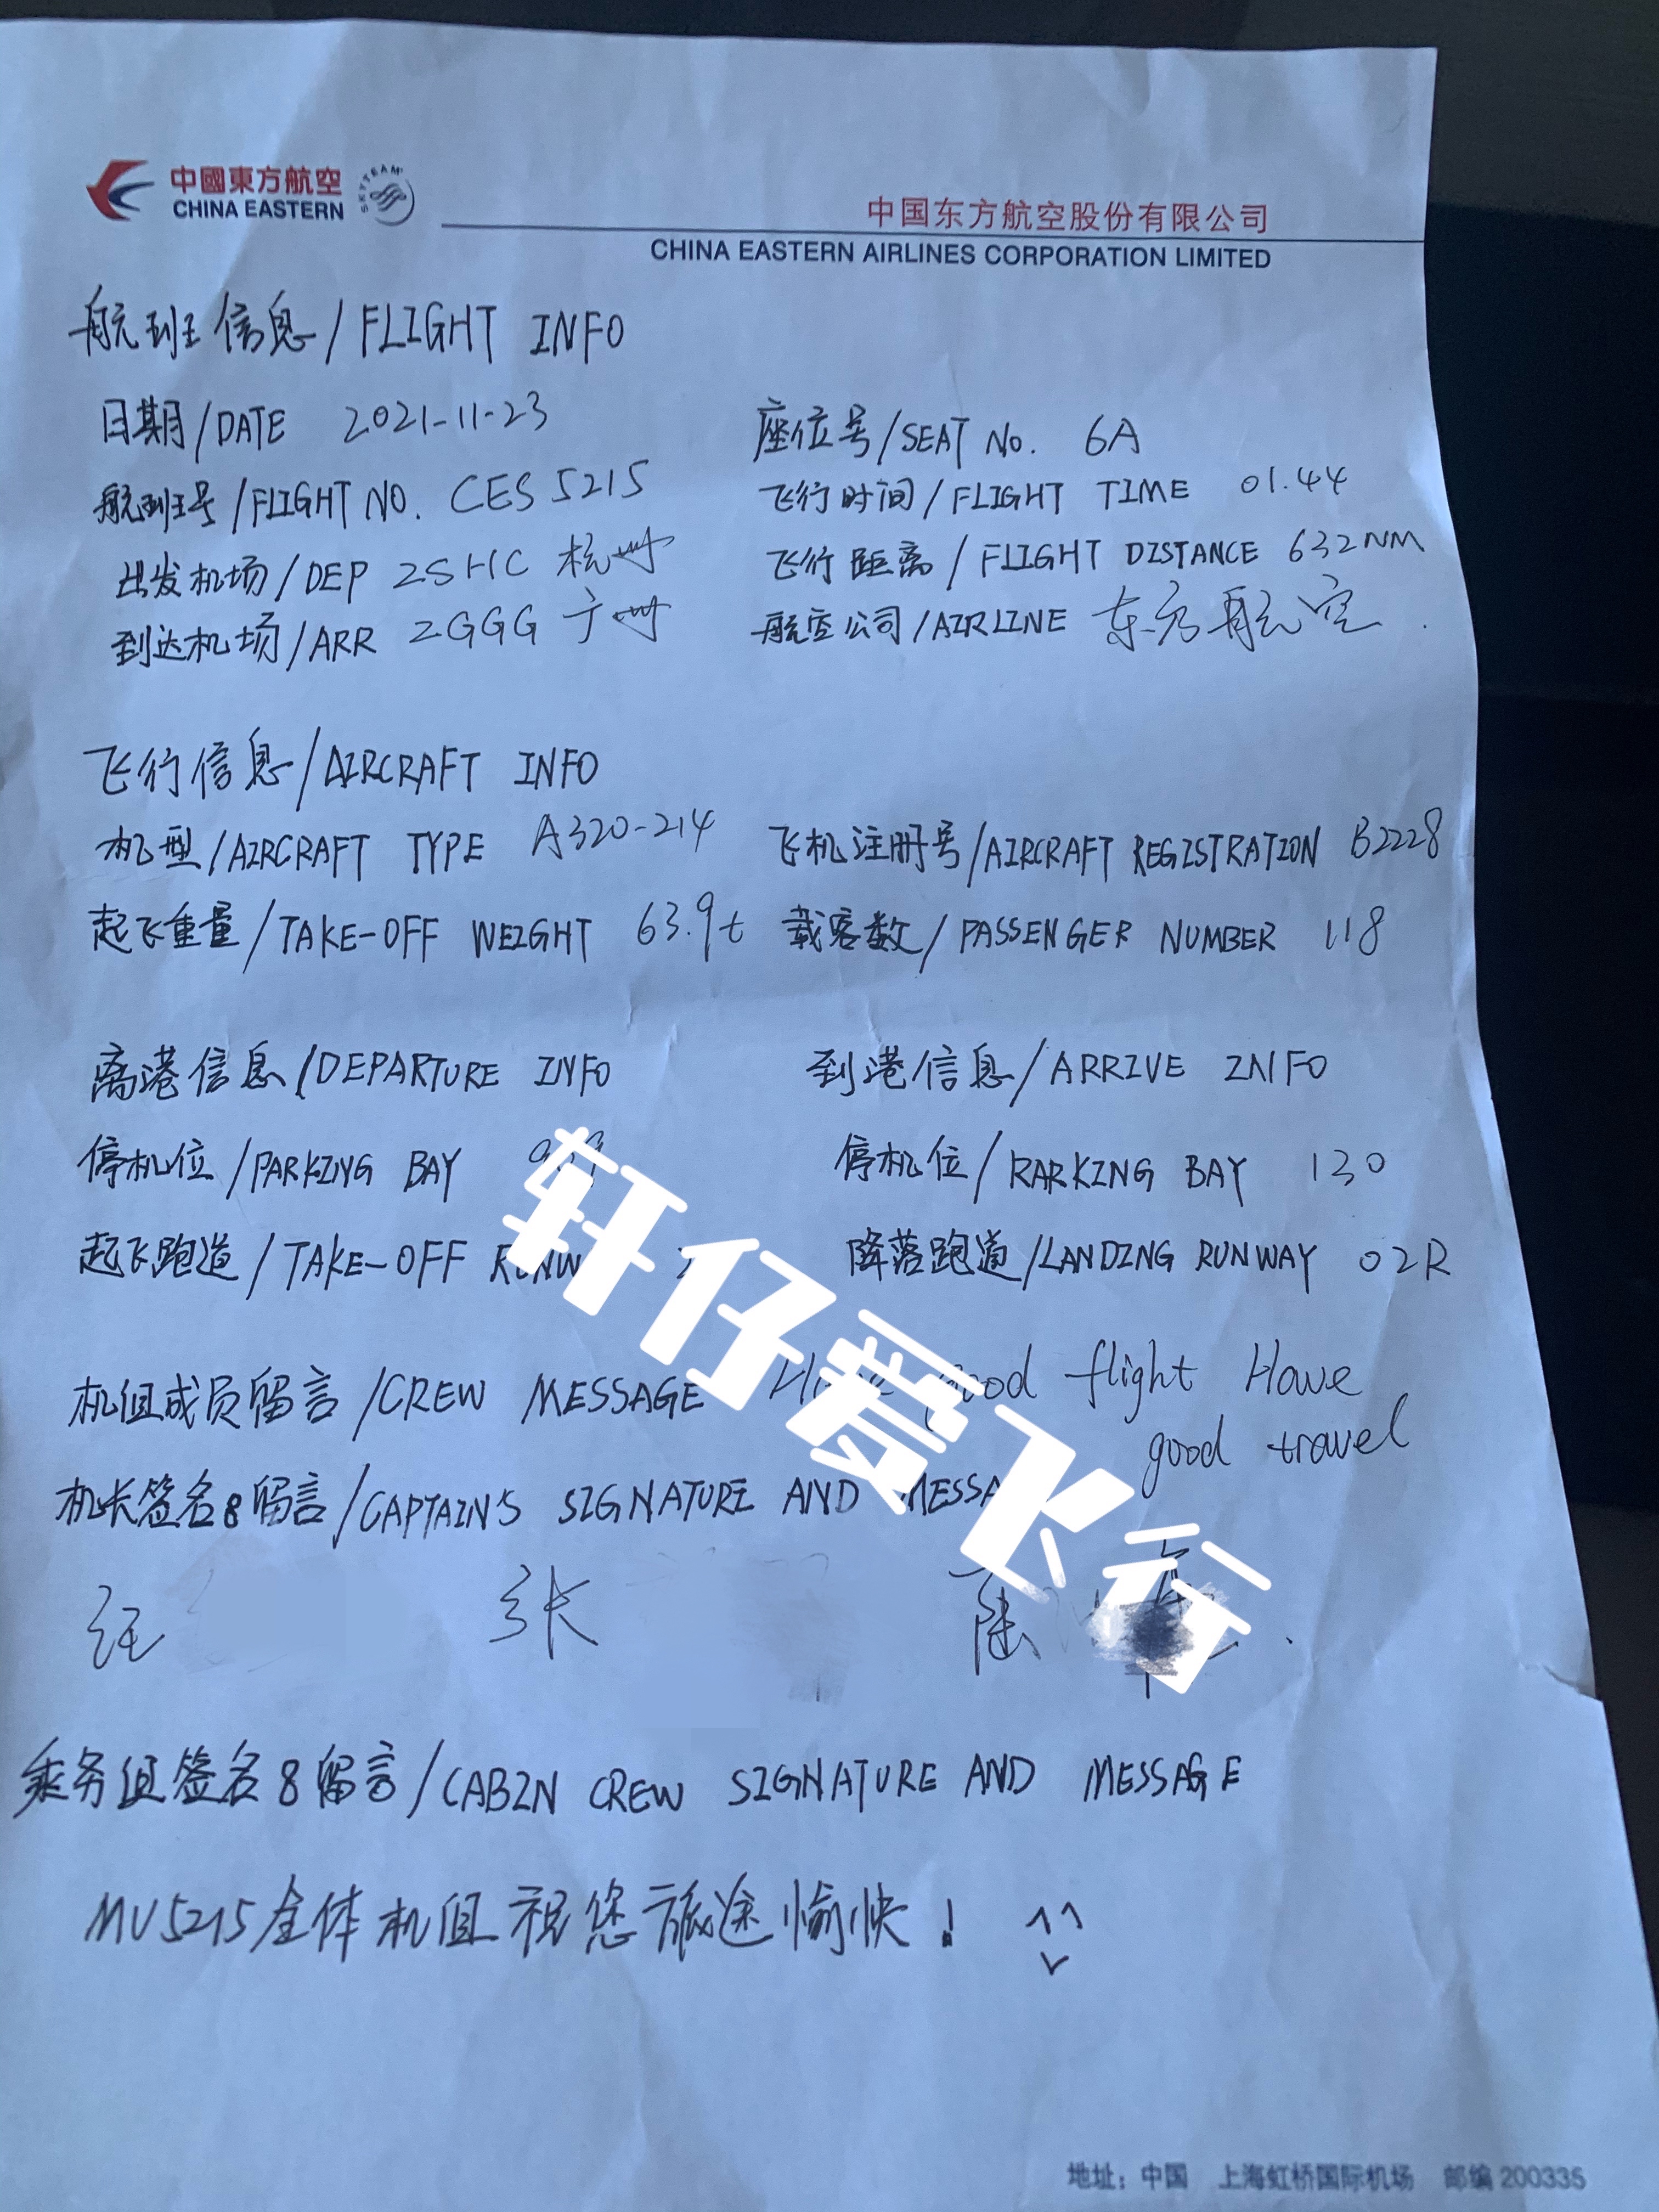 中國東方航空
CHINA EASTERN
SKYTEAM
中国东方航空股份有限公司
CHINA EASTERN AIRLINES CORPORATION LIMITED
航班信息/FLIGHT INFO
日期/DATE 2021-11-23 座位号/SEAT No. 6A
航班号/FLIGHT NO. CES 5215 飞行时间/FLIGHT TIME 01.44
出发机场/DEP ZSHC 杭州 飞行距离/FLIGHT DISTANCE 632NM
到达机场/ARR ZGGG 广州 航空公司/AIRLINE 东方航空.
飞行信息/AIRCRAFT INFO
机型/AIRCRAFT TYPE A320-214 飞机注册号/AIRCRAFT REGISTRATION B2228
起飞重量/TAKE-OFF WEIGHT 63.9t 载客数/PASSENGER NUMBER 118
离港信息/DEPARTURE INFO 到港信息/ARRIVE INFO
停机位/PARKING BAY 停机位/RARKING BAY 130
起飞跑道/TAKE-OFF RUNW 降落跑道/LANDING RUNWAY 02R
机组成员留言/CREW MESSAGE good flight Have
good travel
机长签名&留言/CAPTAIN'S SIGNATURE AND MESSA
汪 张 陆
乘务组签名&留言/CABIN CREW SIGNATURE AND MESSAGE
MU5215全体机组祝您旅途愉快!
轩仔爱飞行
地址：中国 上海虹桥国际机场 邮编 200335